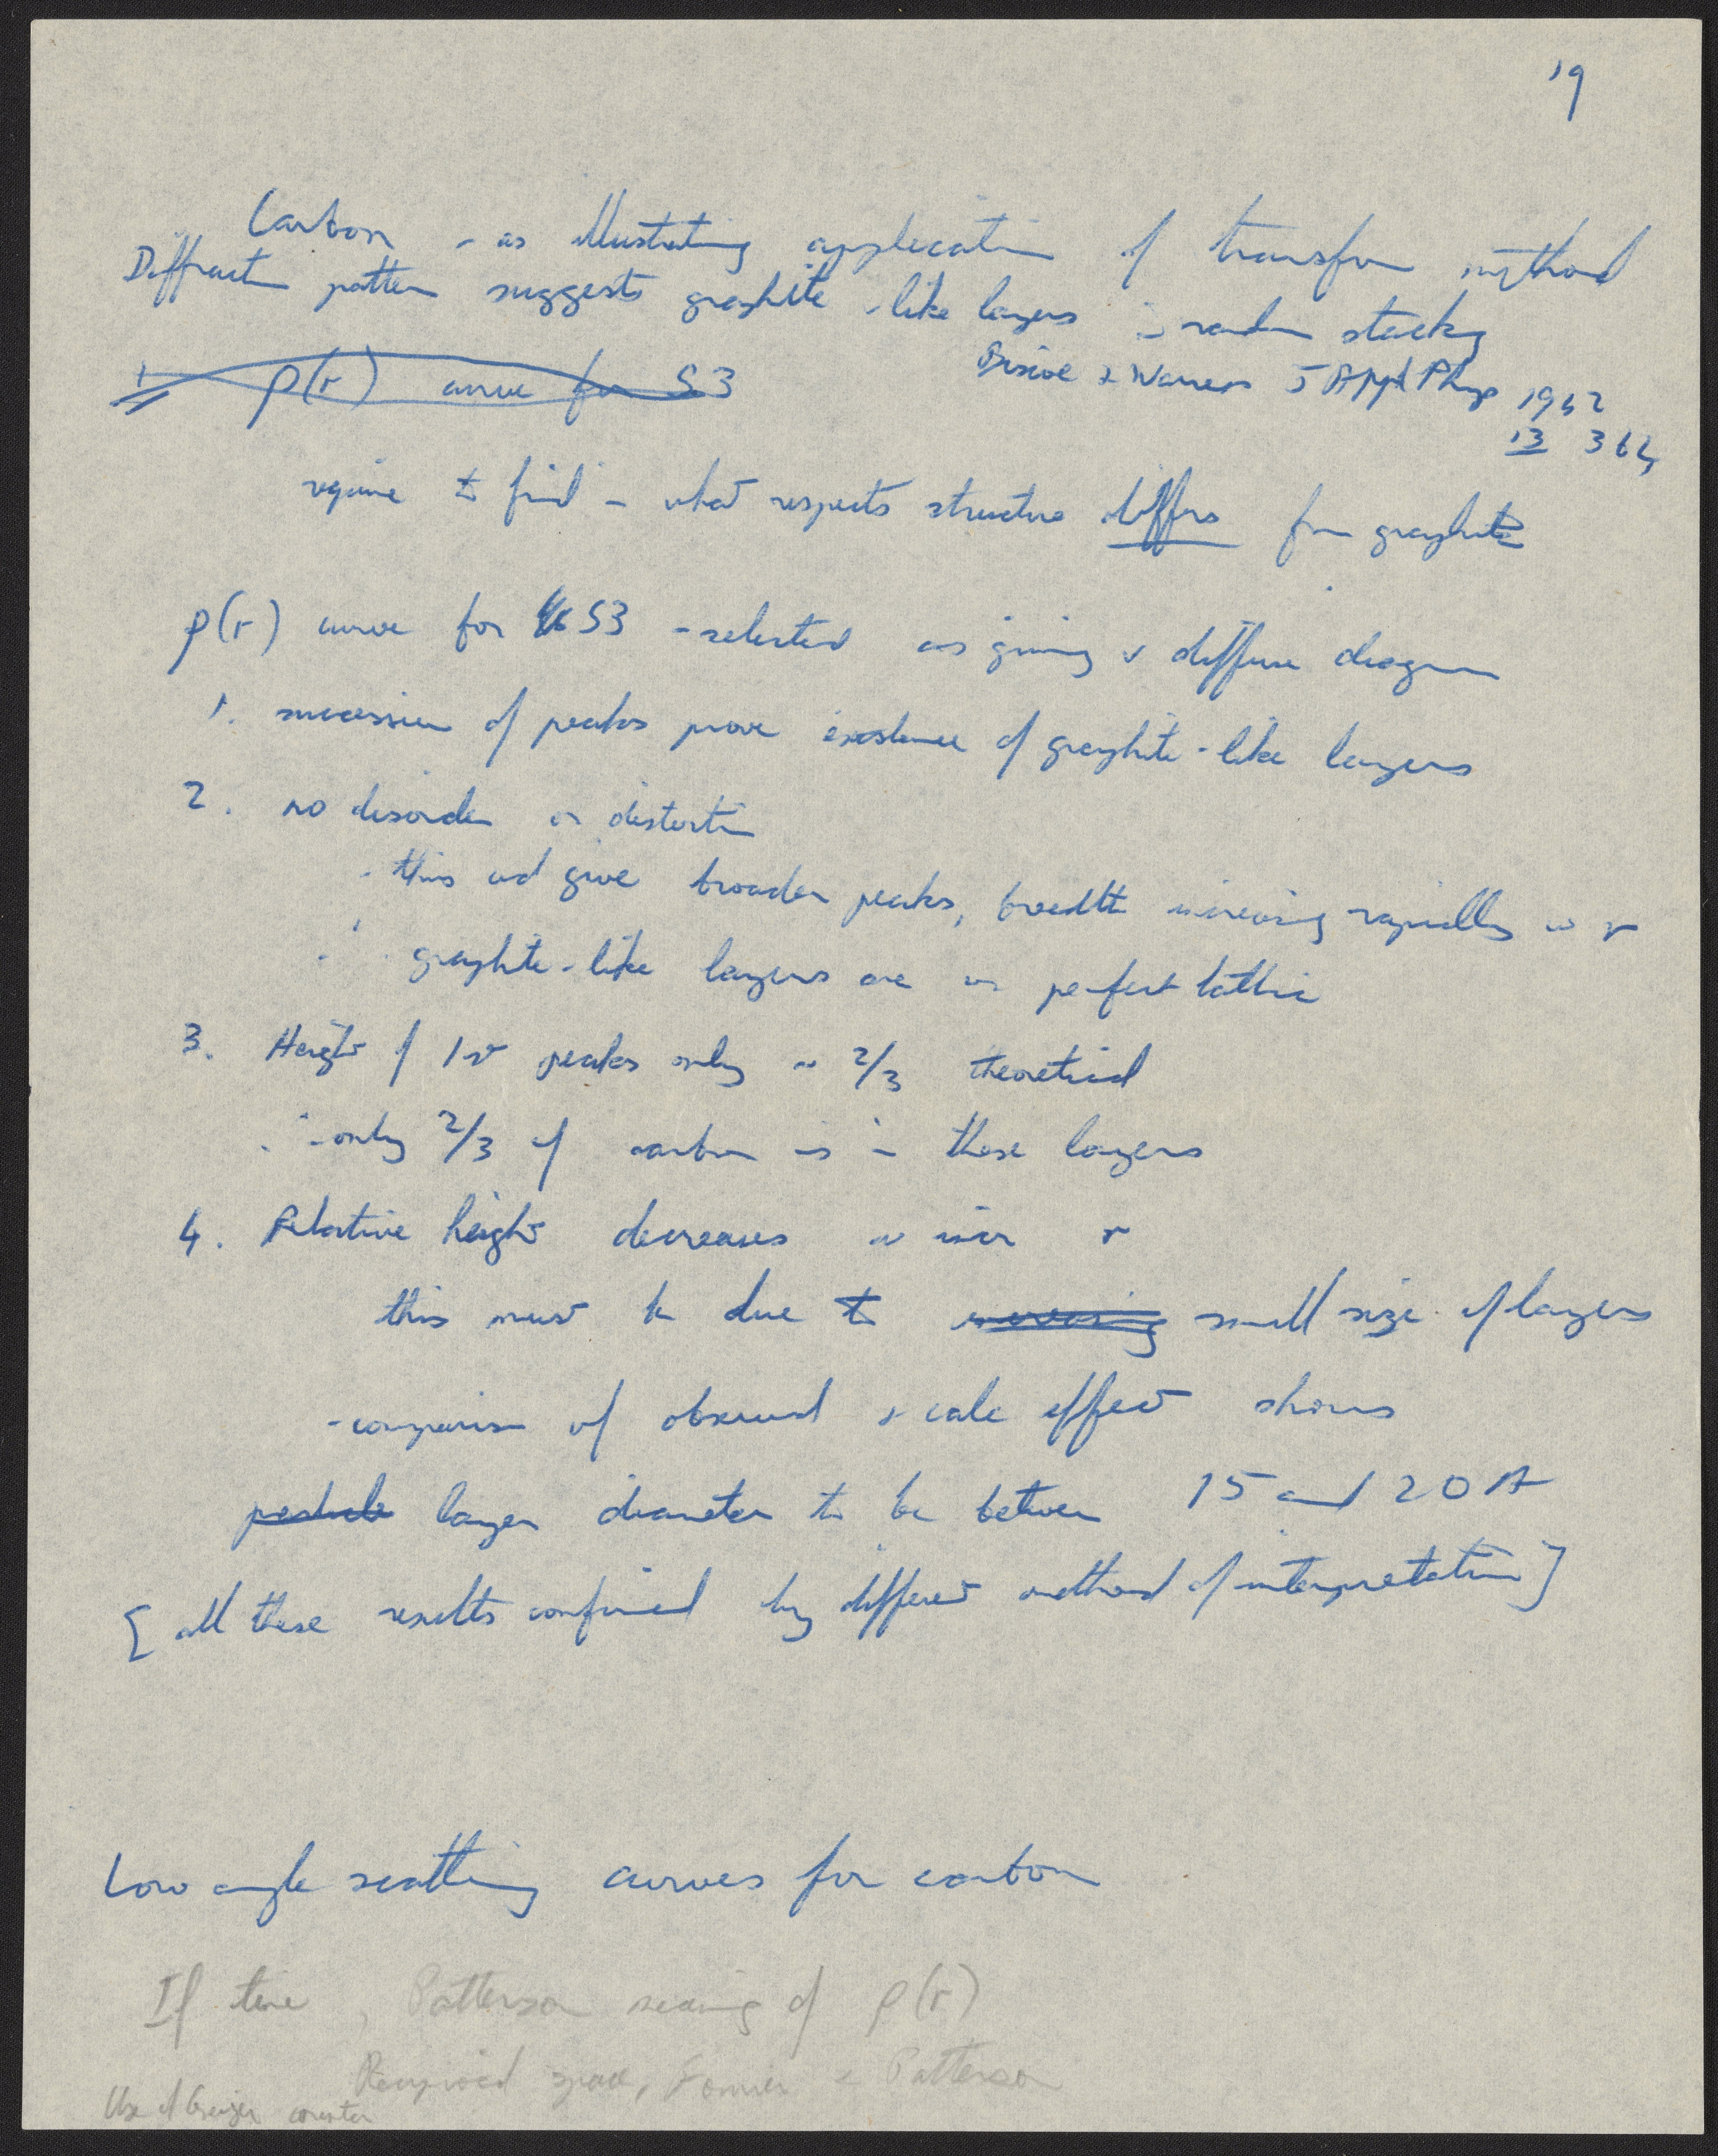 19
Carbon - as illustrating application of transform method
Diffraction pattern suggests graphite-like layers in random stacking
1 ρ(r) curve for S3
Biscoe & Warren J Appl Phys 1942
13 364
require to find in what respects structure differs from graphite
ρ(r) curve for S3 - selected as giving v diffuse diagram
1. succession of peaks prove existence of graphite-like layers
2. no disorder or distortion
- this wd give broader peaks, breadth increasing rapidly w r
∴ graphite-like layers are as perfect lattice
3. Height of 1st peaks only ~ 2/3 theoretical
∴ - only 2/3 of carbon is in these layers
4. Relative height decreases w incr r
this must be due to increasing small size of layers
- comparison of observed & calc effect shows
particle layer diameter to be between 15 and 20 A
[all these results confirmed by different method of interpretation]
Low angle scattering curves for carbon
If time, Patterson meaning of ρ(r)
Reciprocal space, Fourier & Patterson
Use of Geiger counter